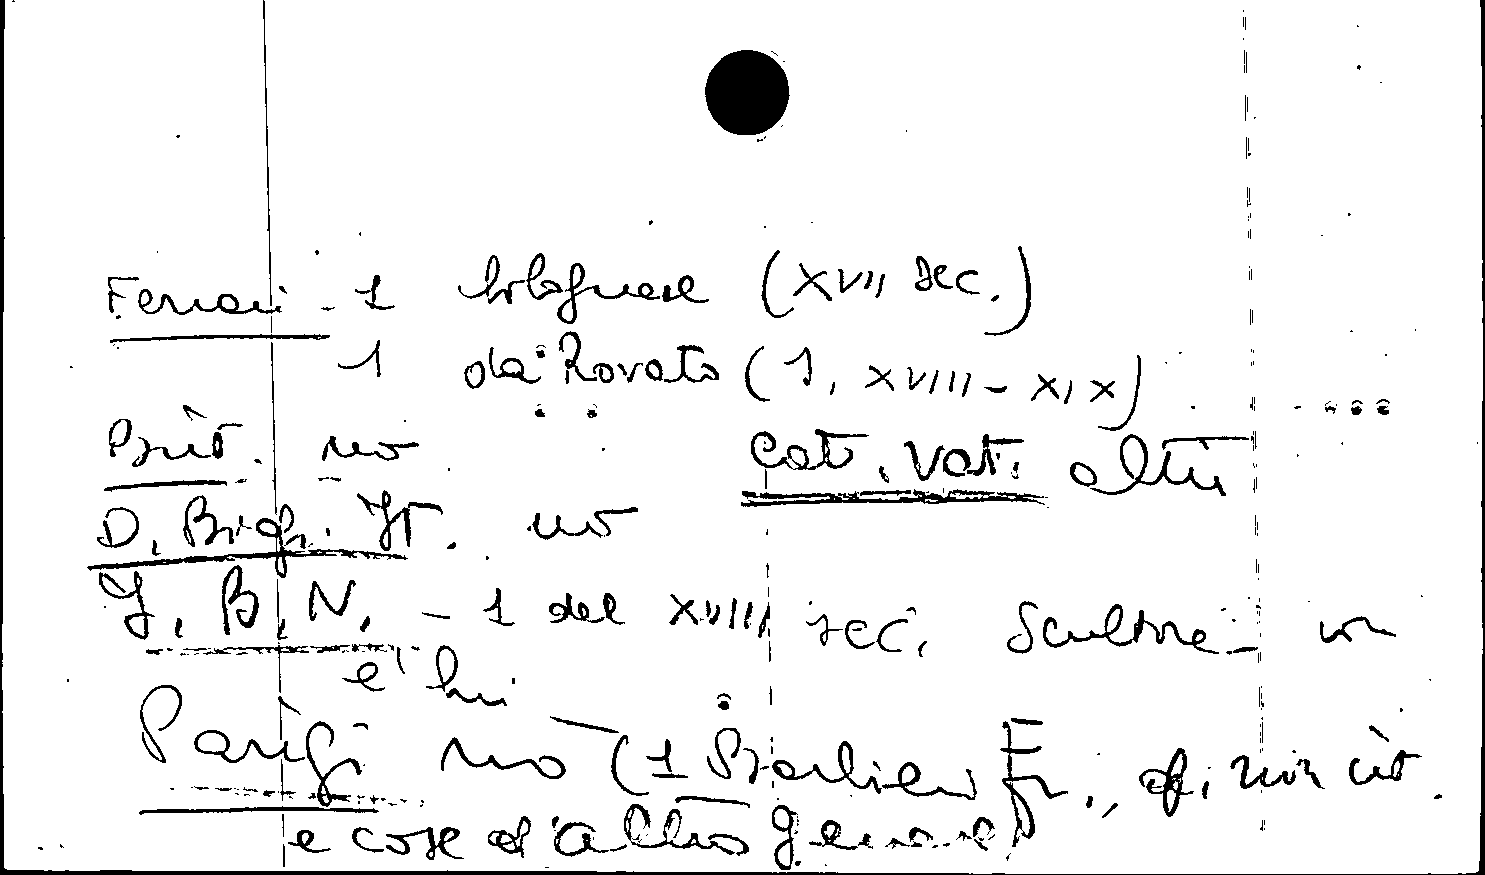 Ferrari - 1 bolognese (XVII sec.)
1 da Rovato (1, XVIII - XIX)
Brit. no Cat. Vat. altri
D. Biogr. It. no
I. B. N. - 1 del XVIII sec. scultore - non
e' lui
Parigi no (1 Fr., non cit.
e cose d'altro genere)